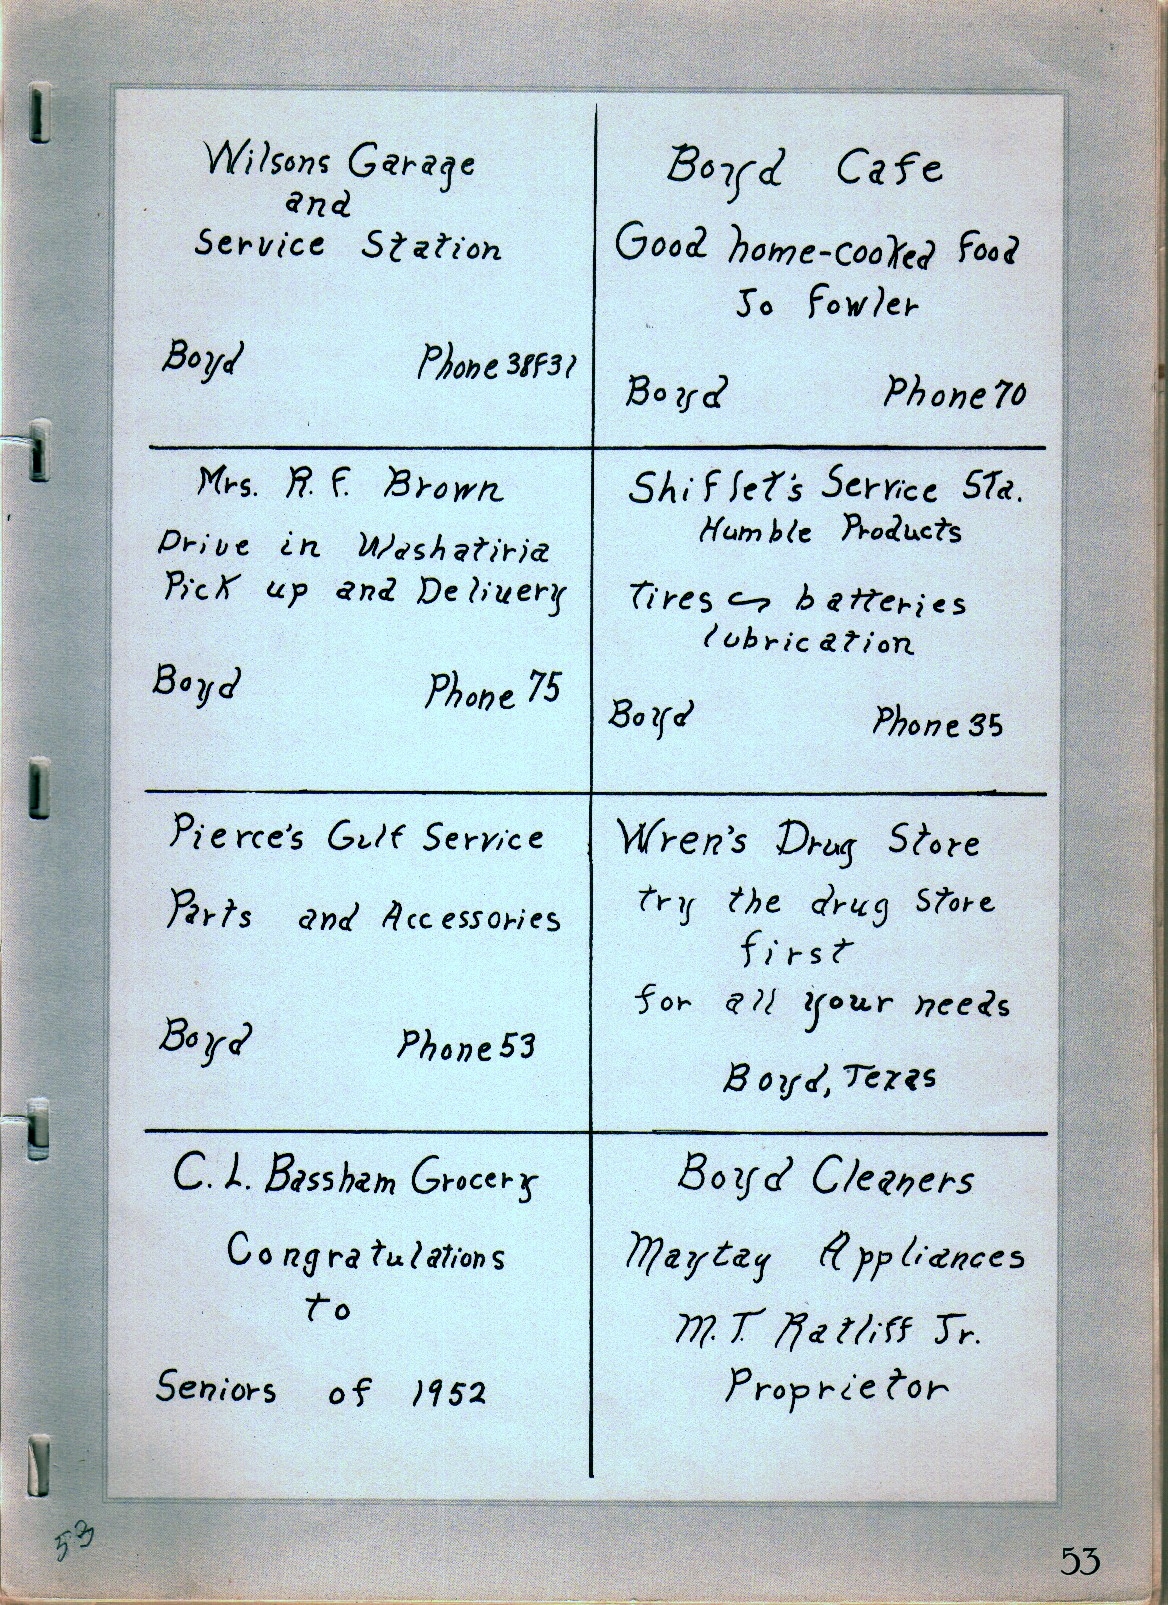 Wilsons Garage
and
Service Station
Boyd Phone 38F31
Boyd Cafe
Good home-cooked food
Jo Fowler
Boyd Phone 70
Mrs. R. F. Brown
Drive in Washatiria
Pick up and Delivery
Boyd Phone 75
Shifflet's Service Sta.
Humble Products
Tires & batteries
lubrication
Boyd Phone 35
Pierce's Gulf Service
Parts and Accessories
Boyd Phone 53
Wren's Drug Store
try the drug store
first
for all your needs
Boyd, Texas
C. L. Bassham Grocery
Congratulations
to
Seniors of 1952
Boyd Cleaners
Maytag Appliances
M. T. Ratliff Jr.
Proprietor
53
53